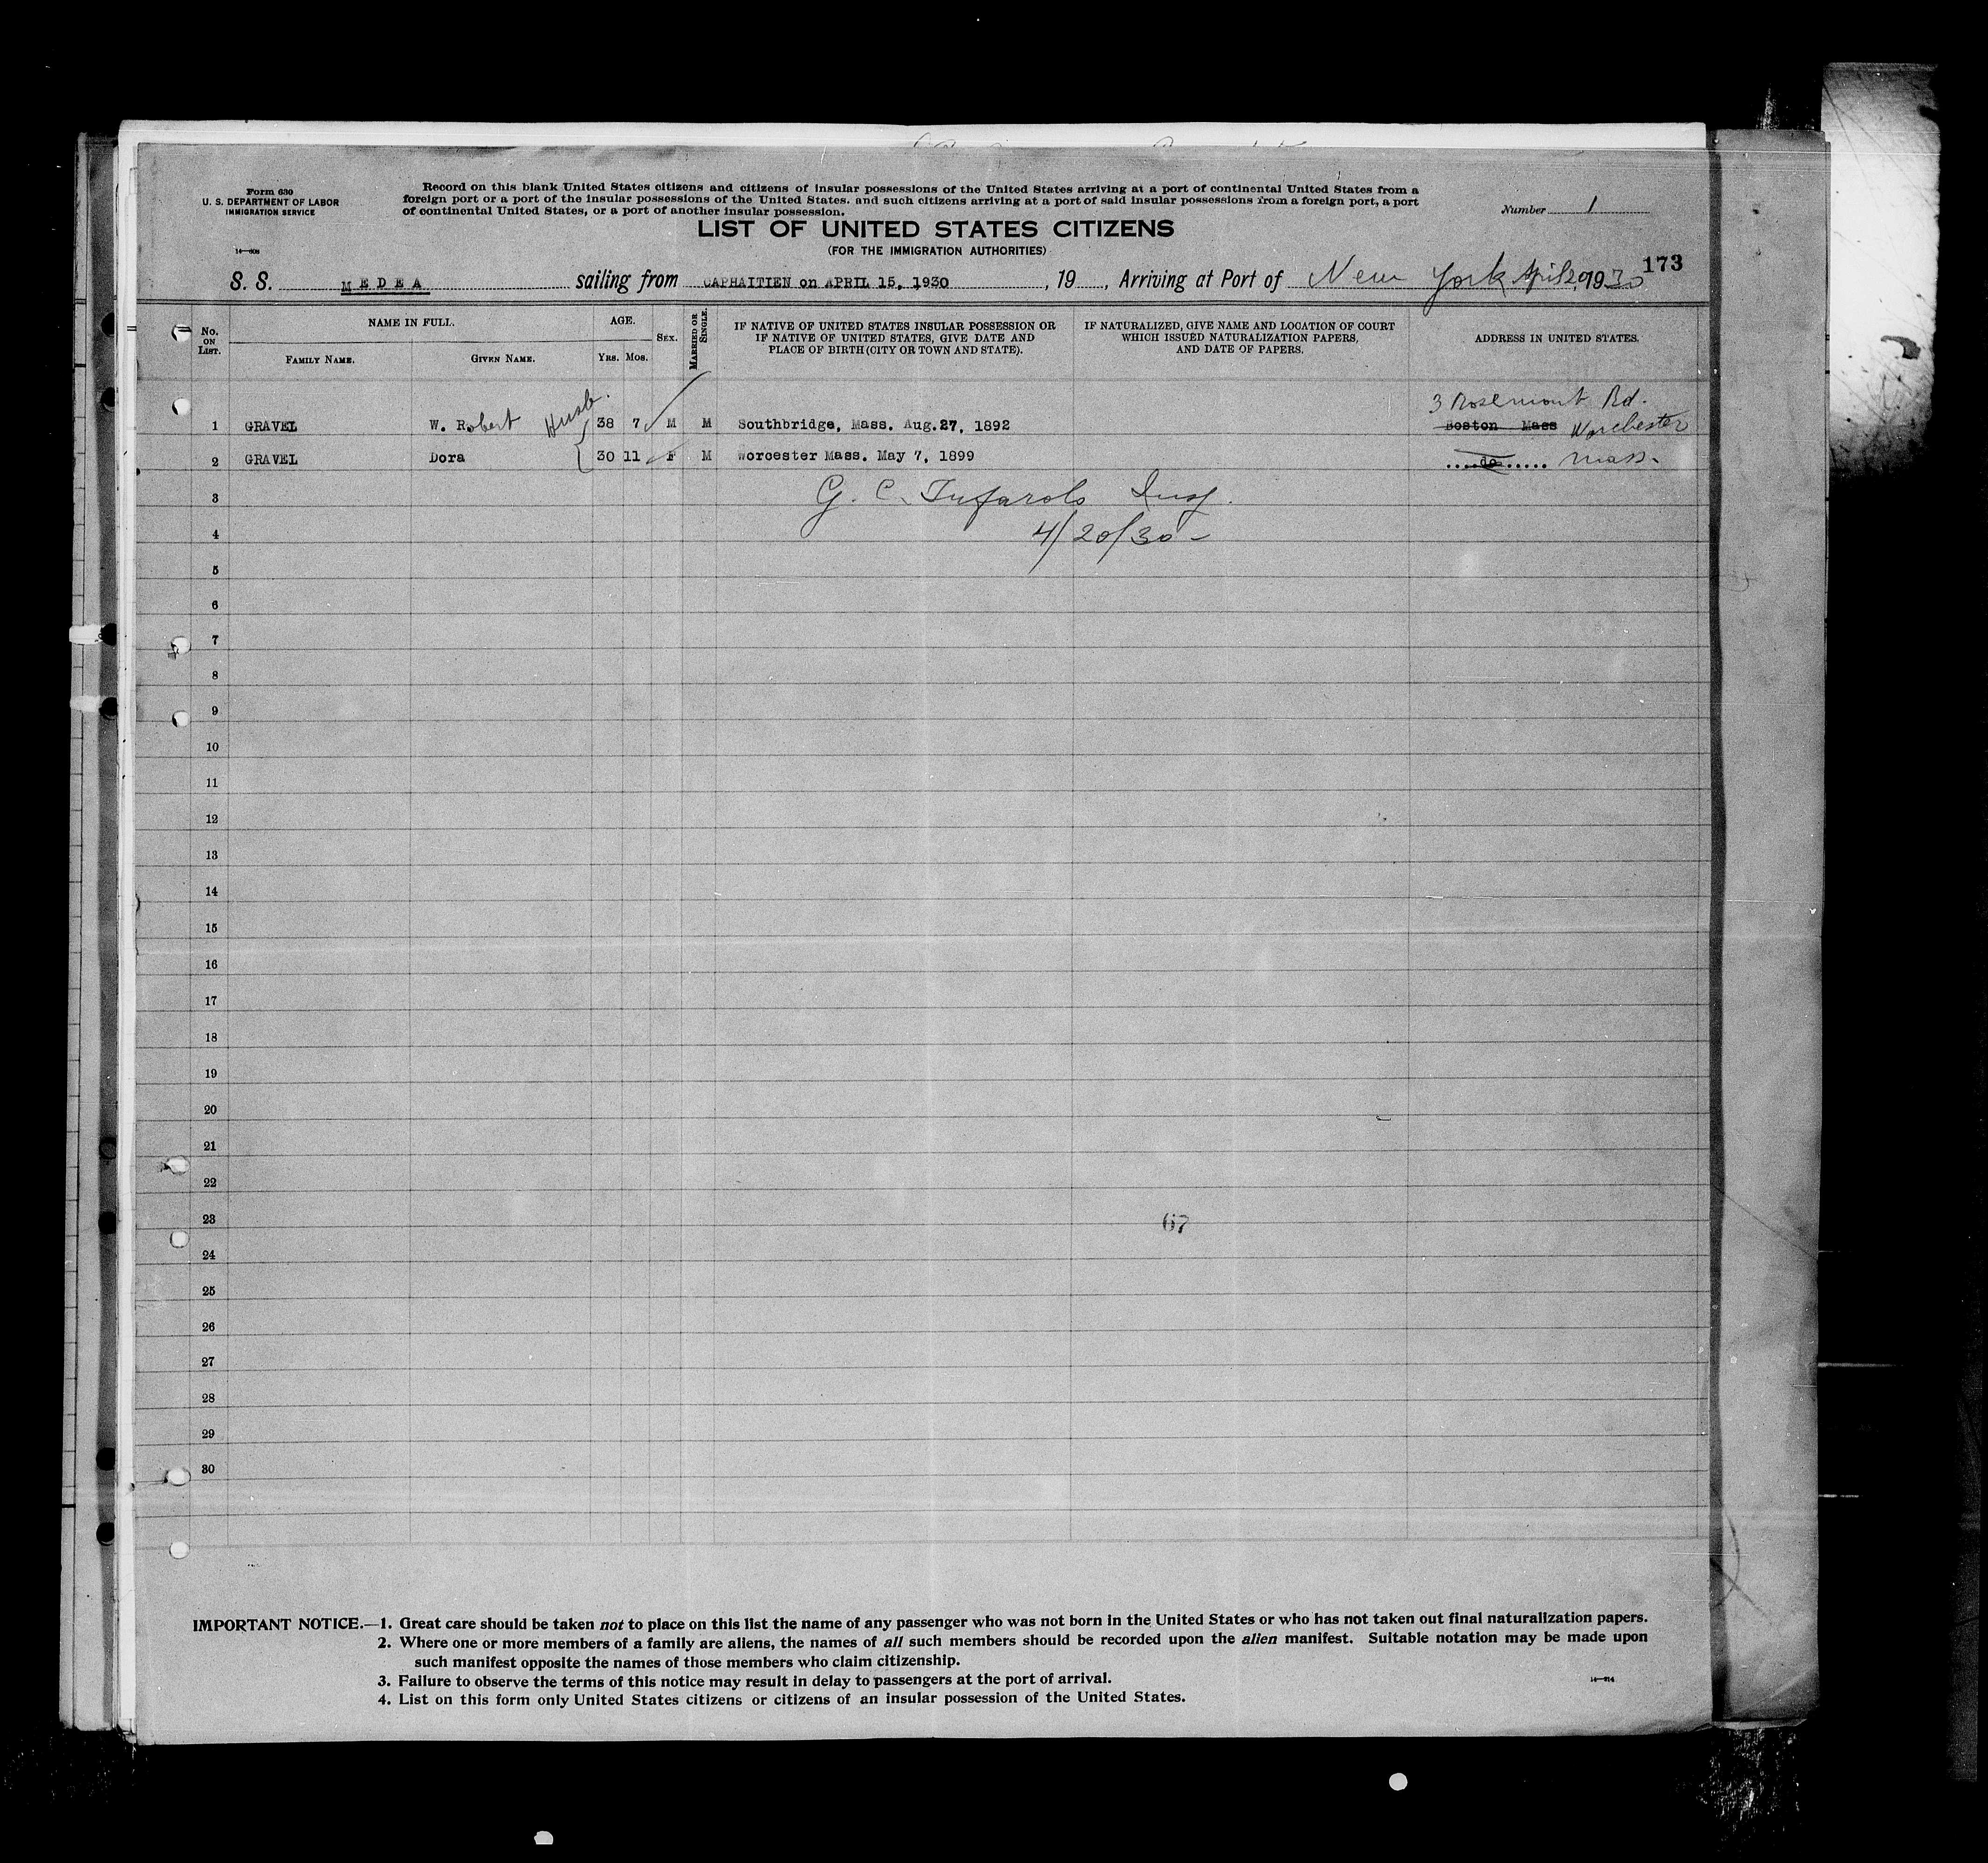 Form 630
U. S. DEPARTMENT OF LABOR
IMMIGRATION SERVICE
14—808
Record on this blank United States citizens and citizens of insular possessions of the United States arriving at a port of continental United States from a
foreign port or a port of the insular possessions of the United States. and such citizens arriving at a port of said insular possessions from a foreign port, a port
of continental United States, or a port of another insular possession.
Number 1
LIST OF UNITED STATES CITIZENS
(FOR THE IMMIGRATION AUTHORITIES)
173
S. S. MEDEA sailing from CAPHAITIEN on APRIL 15, 1930, 19 , Arriving at Port of New York April 20, 1930
No. ON LIST.
NAME IN FULL.
FAMILY NAME.
GIVEN NAME.
AGE.
YRS. MOS.
SEX.
MARRIED OR SINGLE.
IF NATIVE OF UNITED STATES INSULAR POSSESSION OR
IF NATIVE OF UNITED STATES, GIVE DATE AND
PLACE OF BIRTH (CITY OR TOWN AND STATE).
IF NATURALIZED, GIVE NAME AND LOCATION OF COURT
WHICH ISSUED NATURALIZATION PAPERS,
AND DATE OF PAPERS.
ADDRESS IN UNITED STATES.
3 Rosemont Rd.
1 GRAVEL W. Robert Husb. 38 7 M M Southbridge, Mass. Aug. 27, 1892 Boston Mass Worchester
2 GRAVEL Dora 30 11 F M Worcester Mass. May 7, 1899 ....do...... Mass.
3 G. C. Insp.
4 4/20/30-
5
6
7
8
9
10
11
12
13
14
15
16
17
18
19
20
21
22
23 67
24
25
26
27
28
29
30
IMPORTANT NOTICE.—1. Great care should be taken not to place on this list the name of any passenger who was not born in the United States or who has not taken out final naturalization papers.
2. Where one or more members of a family are aliens, the names of all such members should be recorded upon the alien manifest. Suitable notation may be made upon
such manifest opposite the names of those members who claim citizenship.
3. Failure to observe the terms of this notice may result in delay to passengers at the port of arrival.
4. List on this form only United States citizens or citizens of an insular possession of the United States.